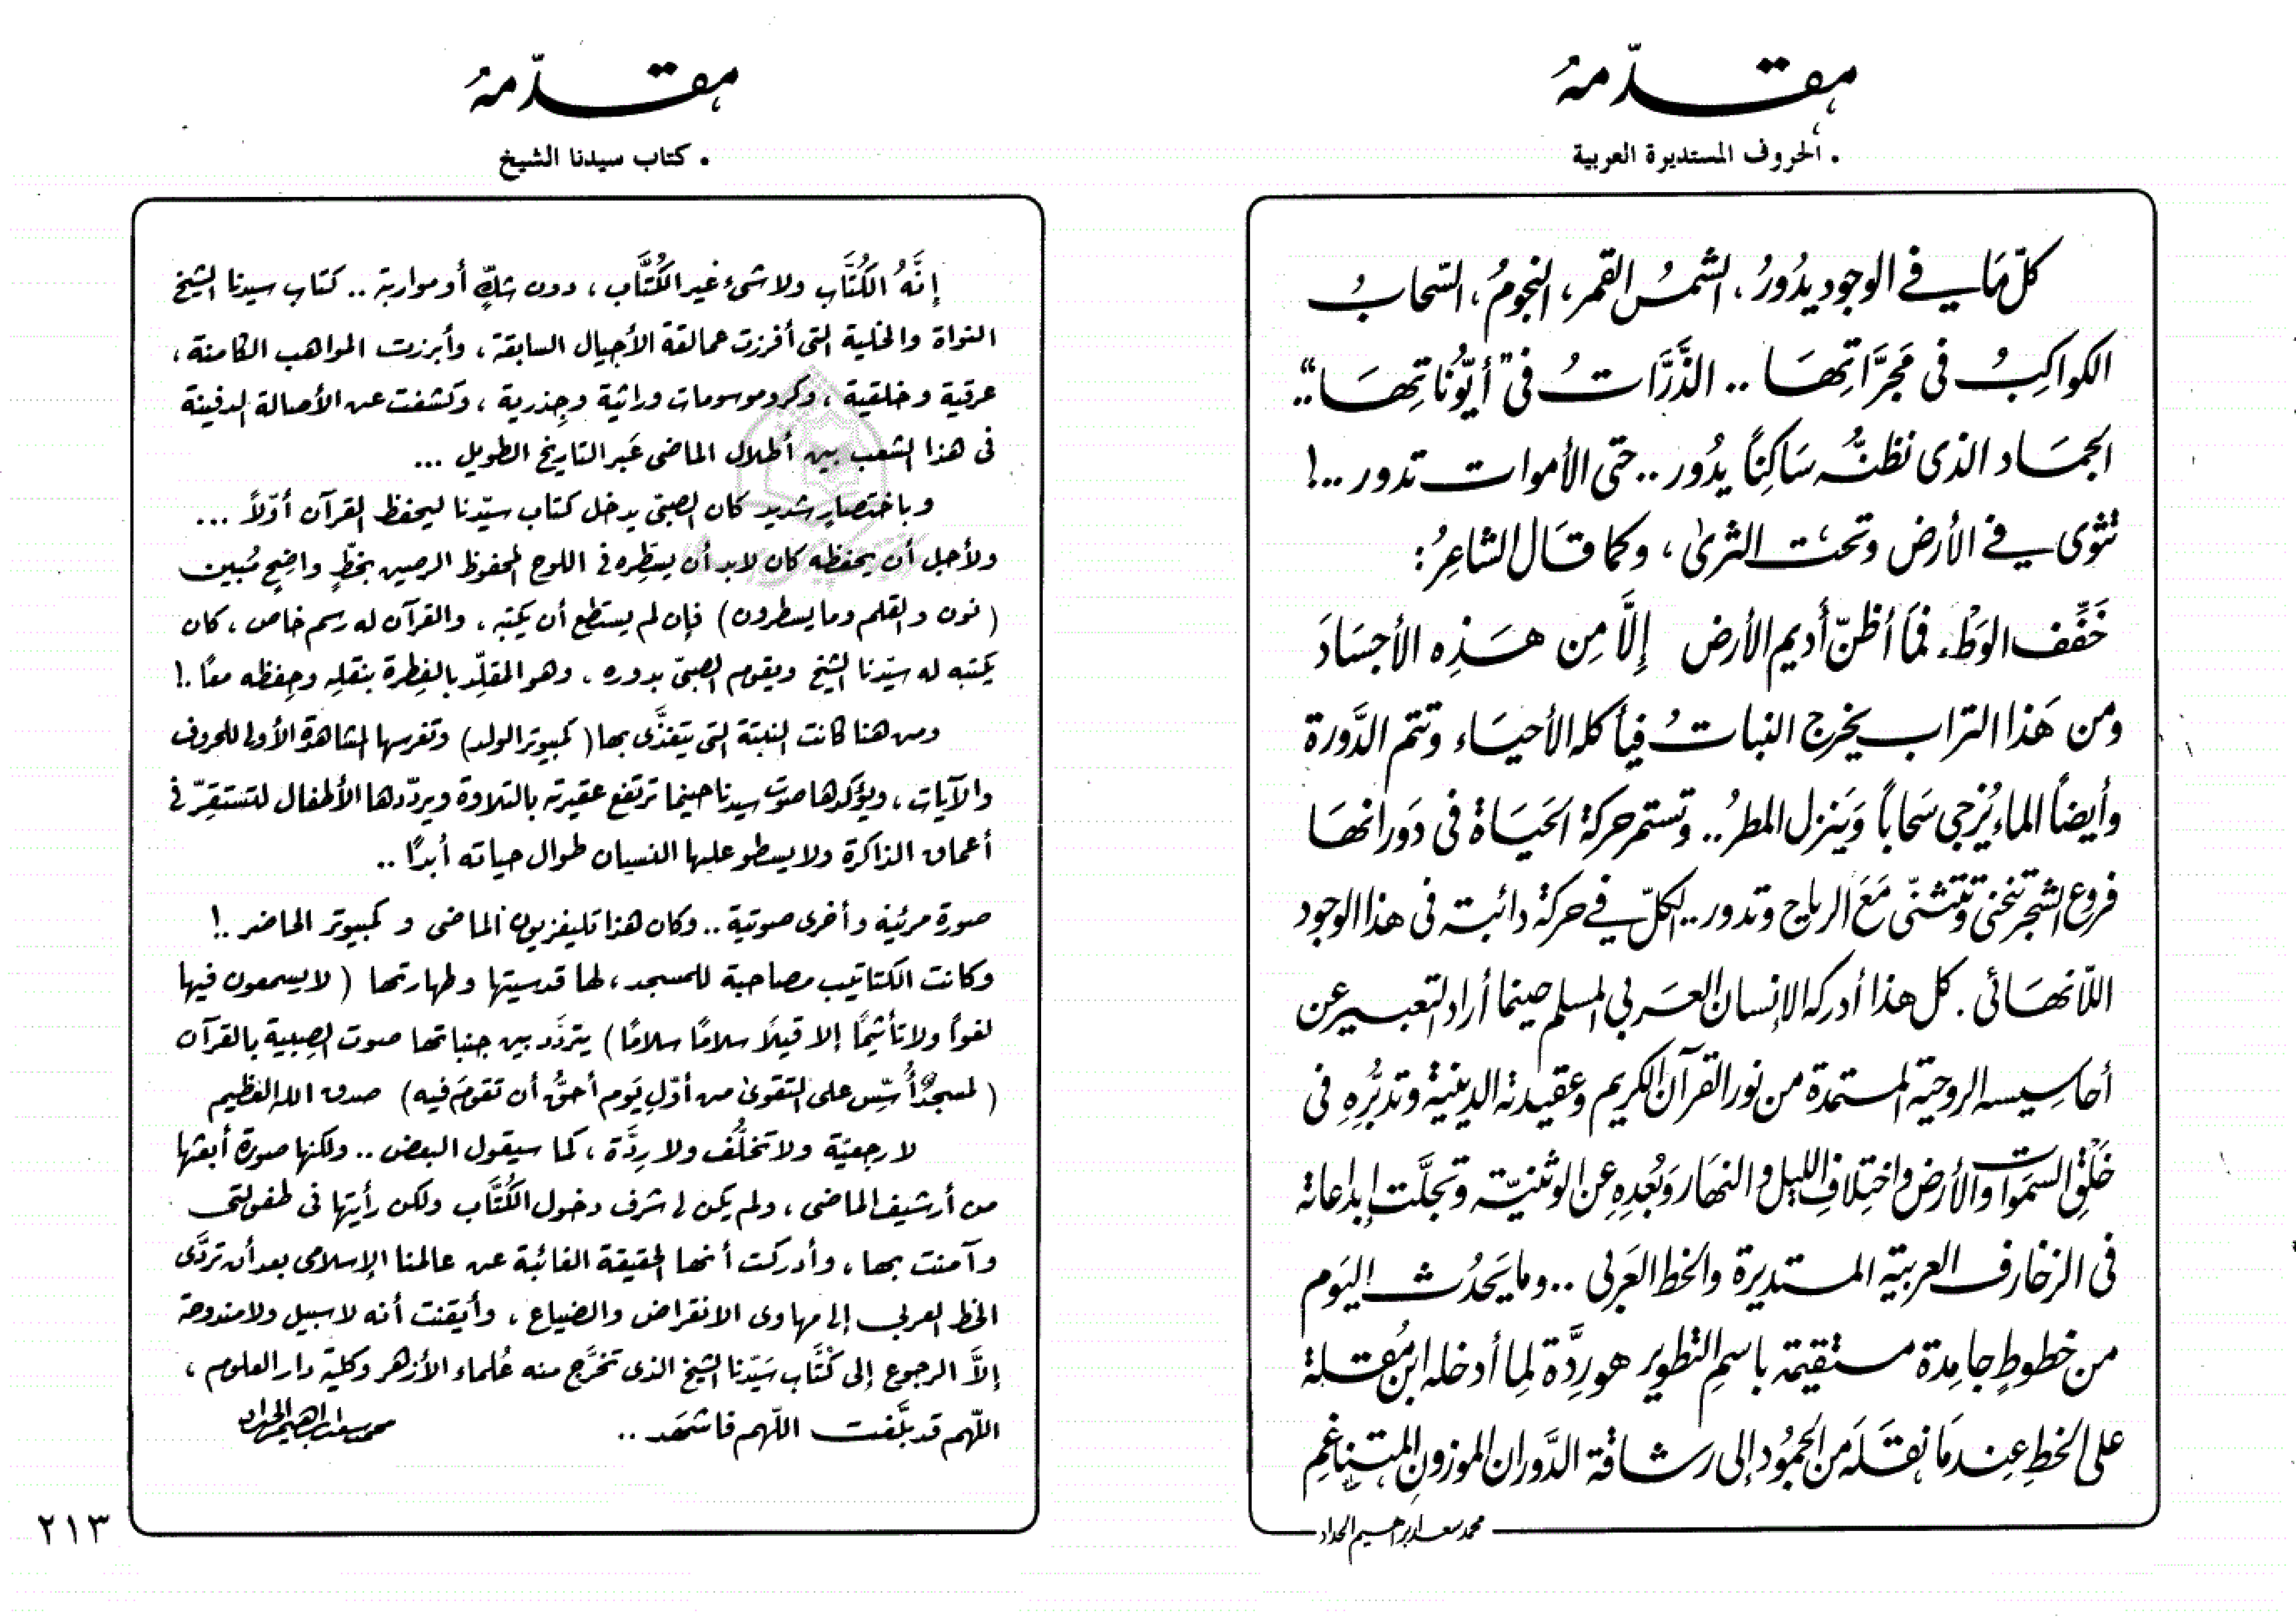 مقدّمة
• الحروف المستديرة العربية
كلّ مَا في الوجود يدُورُ، الشمسُ القمر، النجومُ، السّحابُ
الكواكِبُ فى مَجرَّاتِهَا .. الذَّرَّاتُ فى "أيّونَاتِهَا"..
الجمَاد الذى نظنُّه سَاكِنًا يدُور .. حتى الأموات تدور ..!
تثوى في الأرض وتحت الثرىٰ، وكما قَال الشاعِرُ:
خَفِّف الوَطْء فمَا أظنّ أديم الأرض إلَّا مِن هَذِه الأجسَادَ
ومن هَذا التراب يخرج النباتُ فيأكله الأحيَاء وتتم الدَّورة
وأيضاً الماء يُزجي سَحاباً وَينزل المطرُ .. وتستمر حركة الحيَاة فى دَورانهَا
فروع الشجر تنحنى وتتثنّى مَعَ الرياح وتدور .. الكلّ في حركة دائبة فى هذا الوجود
اللّانهَائى . كل هذا أدركه الإنسان العَربي المسلم حينما أراد التعبير عن
أحاسِيسه الروحية المستمدة من نور القرآن الكريم وعقيدته الدينية وتدبُّرِهِ فى
خَلْقِ السمَوات والأرض واختِلافِ الليل والنهَار وَبُعدِهِ عن الوثنيّة وتجلَّت إبداعاته
فى الزخارف العربية المستديرة والخط العَربى .. وما يَحدُث اليَوم
من خطوطٍ جامِدة مستقيمة باسمِ التطوير هو رِدَّة لِما أدخله ابن مُقلة
على الخطِ عِندمَا نقَلَه مِنَ الجمُود إلى رشاقة الدَّوران الموزونِ المتناغمِ
محمد سعد إبراهيم الحداد
مقدّمة
• كتاب سيدنا الشيخ
إنَّهُ الكُتَّاب ولا شىء غير الكُتَّاب، دون شكٍّ أو مواربة .. كتاب سيدنا الشيخ
النواة والخلية التى أفرزت عمالقة الأجيال السابقة، وأبرزت المواهب الكامنة،
عرقية وخلقية، وكروموسومات وراثية وجِذرية، وكشفت عن الأصالة الدفينة
فى هذا الشعب بين أطلال الماضى عَبر التاريخ الطويل ...
وباختصارٍ شديد كان الصبىّ يدخل كتاب سيّدنا ليحفظ القرآن أوّلاً ...
ولأجل أن يحفظه كان لابد أن يسَطِّره فى اللوح المحفوظ الرصين بخطٍّ واضِحٍ مُبين
(نون والقلم وما يسطرون) فإن لم يستطع أن يكتبه، والقرآن له رسم خاص، كان
يكتبه له سيّدنا الشيخ ويقوم الصبىّ بدوره، وهو المقلِّد بالفِطرة بنقلِه وحِفظه معًا.!
ومن هنا كانت النبتة التى يتغذَّى بها (كمبيوتر الولد) وتغرسها المشاهدة الأولى للحروف
والآيات، ويؤكدها صوت سيدنا حينما ترتفع عقيرته بالتلاوة ويردّدها الأطفال لتستقِرّ فى
أعماق الذاكرة ولا يسطو عليها النسيان طوال حياته أبدًا ..
صورة مرئية وأخرى صوتية .. وكان هذا تليفزيون الماضى و كمبيوتر الحاضر.!
وكانت الكتاتيب مصاحبة للمسجد، لها قدسيتها وطهارتها (لا يسمعون فيها
لغواً ولا تأثيمًا إلا قيلاً سلامًا سلامًا) يتردَّد بين جنباتها صوت الصِبية بالقرآن
(لمسجدٌ أُسِّس على التقوىٰ من أوّلِ يَوم أحقُّ أن تقومَ فيه) صدق الله العظيم
لا رجعيّة ولا تخلُّف ولا رِدَّة، كما سيقول البعض .. ولكنها صورة أبعثها
من أرشيف الماضى، ولم يكن لى شرف دخول الكُتَّاب ولكن رأيتها فى طفولتى
وآمنت بها، وأدركت أنها الحقيقة الغائبة عن عالمنا الإسلامى بعد أن تردَّى
الخط العربى إلى مهاوى الانقراض والضياع، وأيقنت أنه لا سبيل ولا مندوحة
إلاَّ الرجوع إلى كُتَّاب سَيّدنا الشيخ الذى تخرَّج منه عُلماء الأزهر وكلية دار العلوم،
اللّهم قد بلَّغت اللّهم فاشهَد ..
محمد سعد إبراهيم الحداد
٢١٣